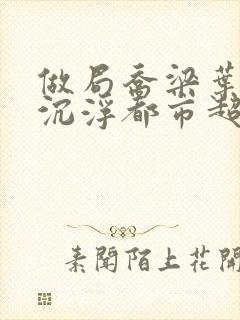 做局乔梁葉
沉浮都市超
素聞陌上花開